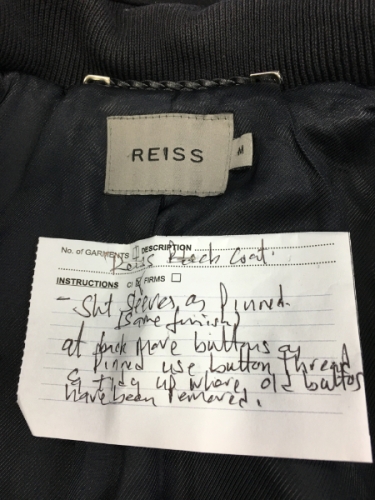 REISS
M
No. of GARMENTS DESCRIPTION
Black Coat.
INSTRUCTIONS FIRMS
- Sht sleeves as pinned.
(same finish)
at move buttons as
pinned use button thread
& tidy up where old buttons
have been removed.